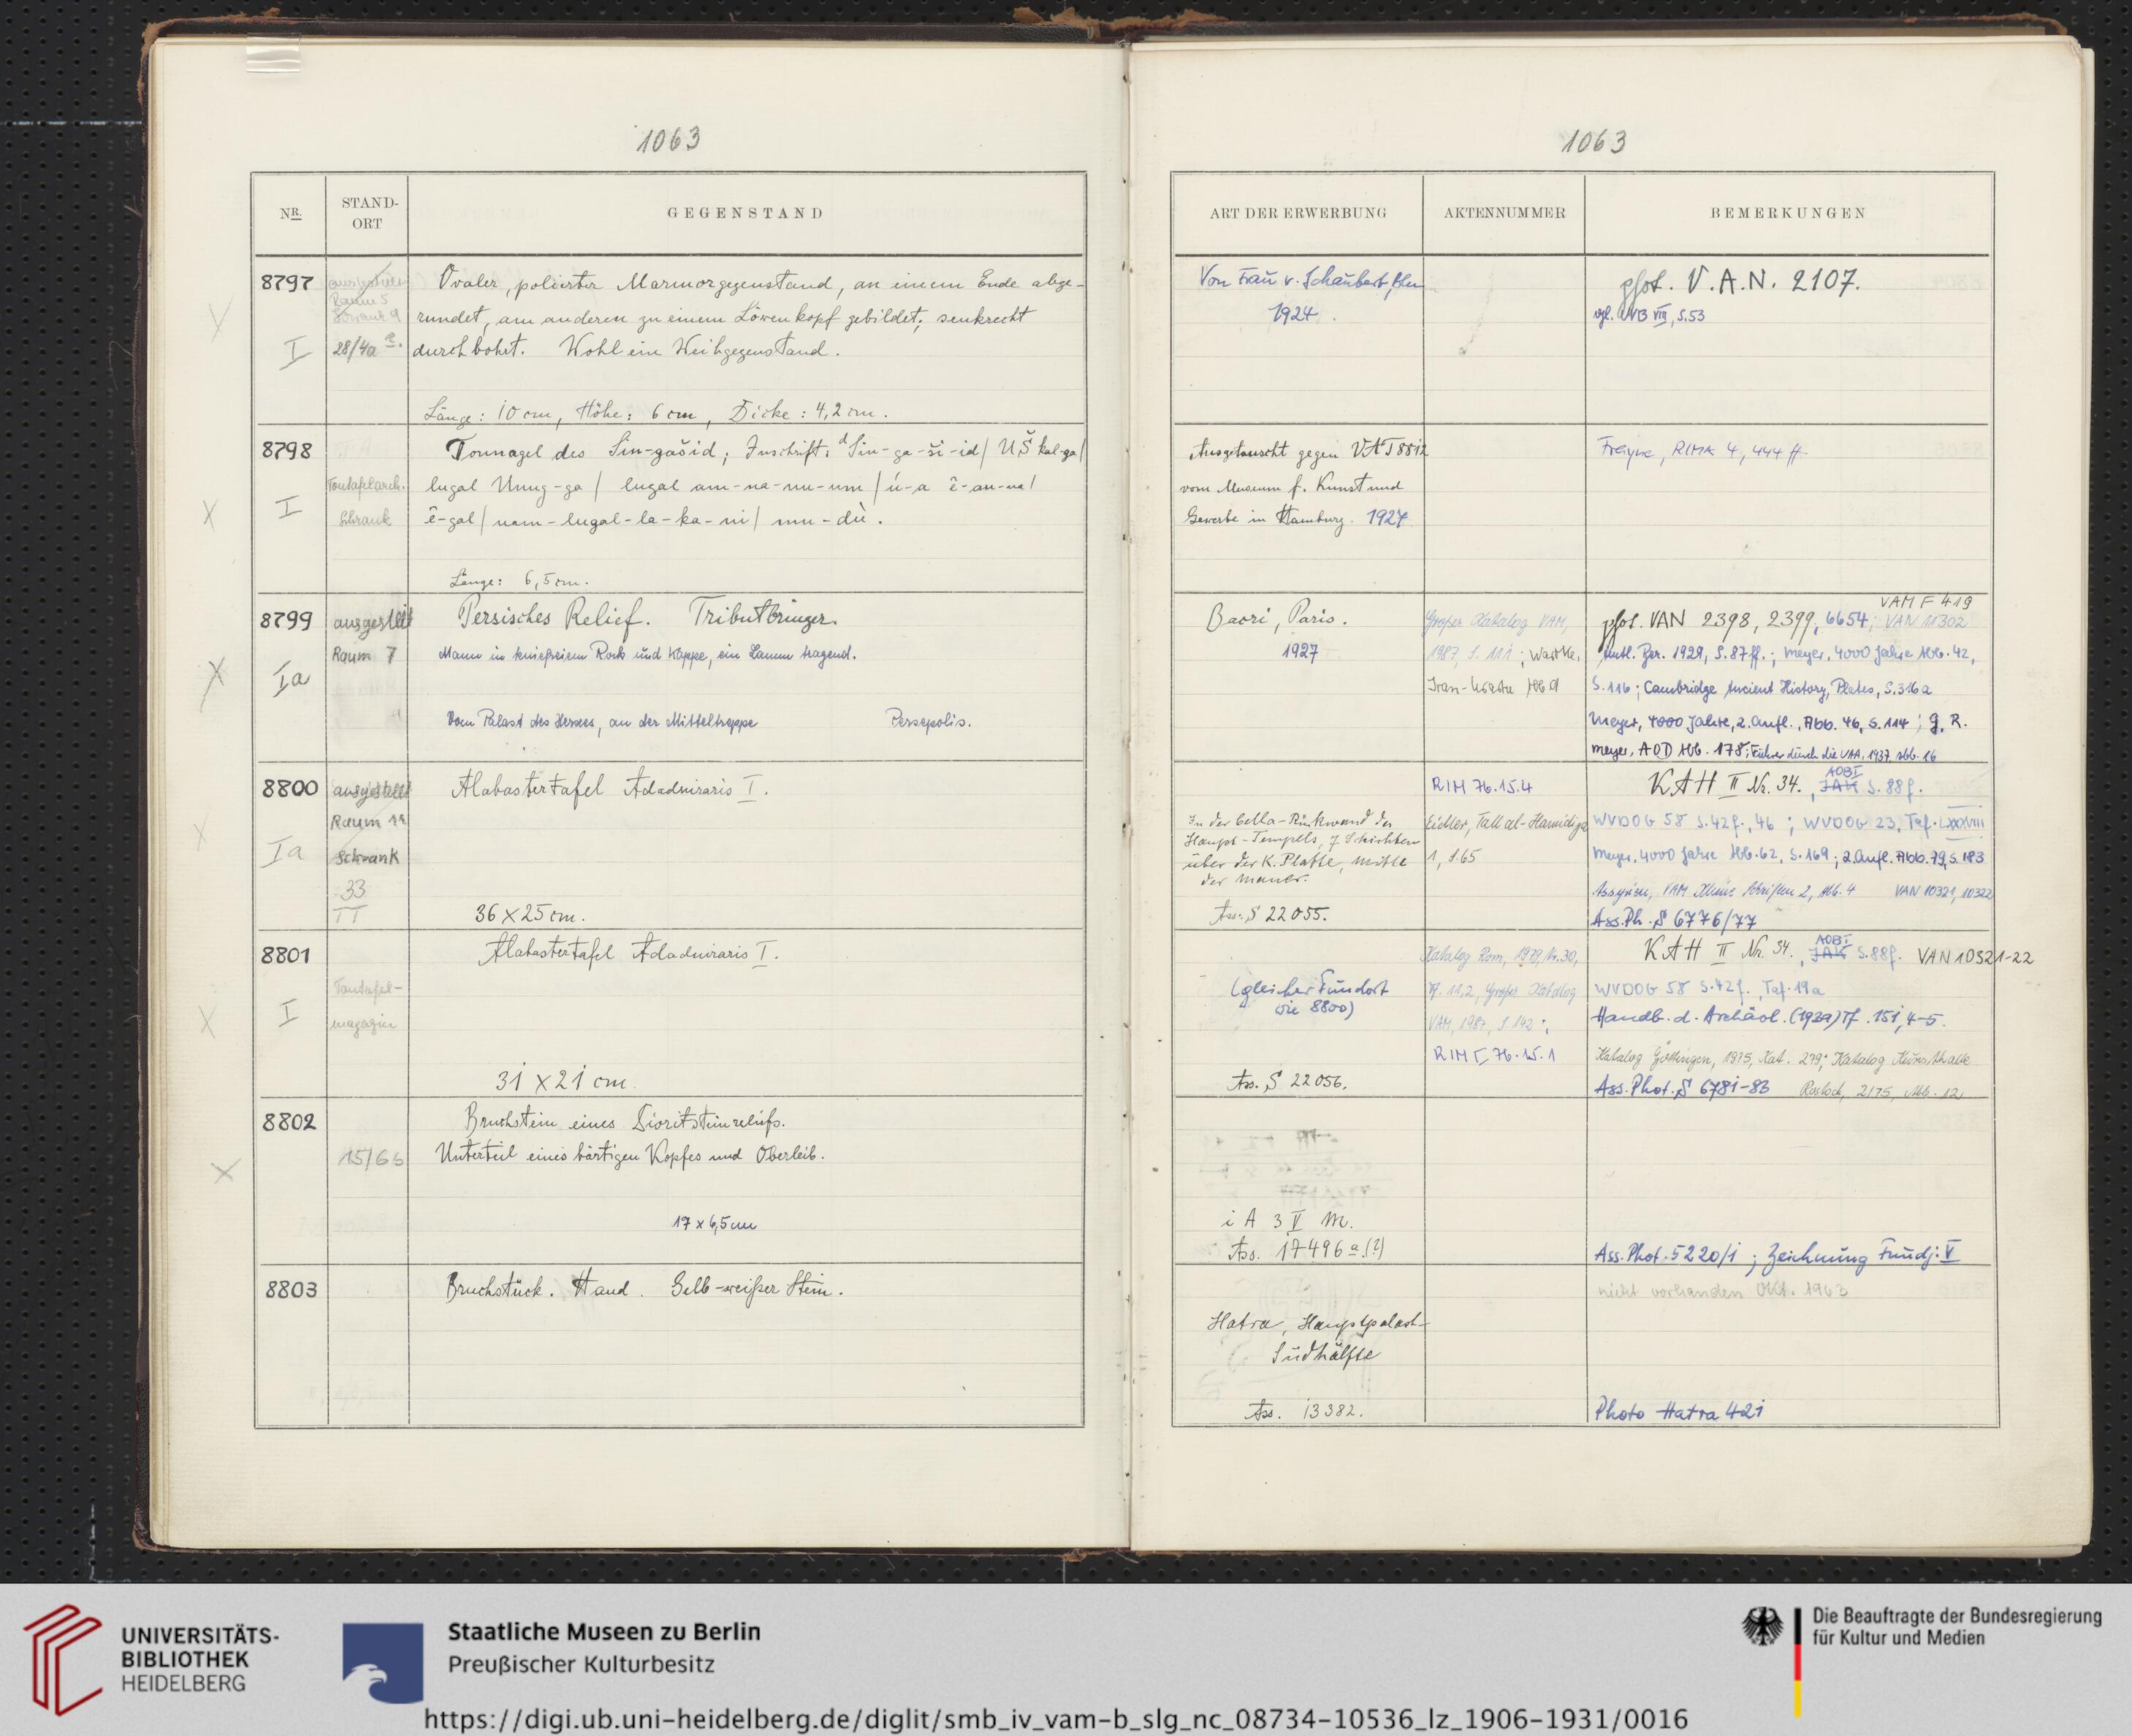 1063
NR.
STAND-
ORT
GEGENSTAND
8797
ausgestellt
Raum 5
Schrank 9
I
28/4a
Ovaler, polierter Marmorgegenstand, an einem Ende abge-
rundet, am anderen zu einem Löwenkopf gebildet; senkrecht
durchbohrt. Wohl ein Weihgegenstand.
Länge: 10 cm, Höhe: 6 cm, Dicke: 4,2 cm.
8798
I
Tontafelarch.
Schrank
Tonnagel des Sin-gašid; Inschrift: ᵈSin-ga-ši-id / UŠ kal-ga /
lugal Unug-ga / lugal am-na-nu-um / ú-a ê-an-na /
ê-gal / nam-lugal-la-ka-ni / mu-dù.
Länge: 6,5 cm.
8799
Ia
ausgestellt
Raum 7
Persisches Relief. Tributbringer.
Mann in kniefreiem Rock und Kappe, ein Lamm tragend.
Vom Palast des Xerxes, an der Mitteltreppe Persepolis.
8800
Ia
ausgestellt
Raum 11
Schrank
33
II
Alabastertafel Adadniraris I.
36 x 25 cm.
8801
I
Tontafel-
magazin
Alabastertafel Adadniraris I.
31 x 21 cm.
8802
15/6b
Bruchstein eines Dioritsteinreliefs.
Unterteil eines bärtigen Kopfes und Oberleib.
17 x 6,5 cm
8803
Bruchstück. Hand. Gelb-weißer Stein.
1063
ART DER ERWERBUNG
AKTENNUMMER
BEMERKUNGEN
Von Frau v. Schaubert, Bln
1924.
phot. V.A.N. 2107.
vgl. VIII, S.53
Ausgetauscht gegen VAT 8812
vom Museum f. Kunst und
Gewerbe in Hamburg. 1927
Frayne, RIMA 4, 444 ff
Bacri, Paris.
1927
Großer Katalog VAM,
1987, S. 111; Wartke,
VAM F 419
phot. VAN 2398, 2399, 6654; VAN 11302
Amtl. Ber. 1929, S. 87 ff.; Meyer, 4000 Jahre Abb. 42,
S. 116; Cambridge Ancient History, Plates, S. 316a
Meyer, 4000 Jahre, 2. Aufl., Abb. 46, S. 114; G. R.
Meyer, AOD Abb. 178; Führer durch die VAA, 1937, Abb. 16
In der Cella-Rückwand des
Haupt-Tempels, 7 Schichten
über der K. Platte, Mitte
der Mauer.
Ass. S 22055.
RIM 76.15.4
Eichler, Tall al-Hamidiya
1, S. 65
KAH II Nr. 34., AOB I JAK S. 88 f.
WVDOG 58 S. 42 f., 46; WVDOG 23, Taf. LXXXVIII
Meyer, 4000 Jahre Abb. 62, S. 169; 2. Aufl. Abb. 79, S. 183
Assyrien, VAM Kleine Schriften 2, Abb. 4 VAN 10321, 10322
Ass. Ph. S 6776/77
(gleicher Fundort
wie 8800)
Ass. S 22056.
Katalog Rom, 1979, Nr. 30,
Tf. 11,2, Großer Katalog
VAM, 1987, S. 142;
RIM 76.15.1
KAH II Nr. 34., AOB I JAK S. 88 f. VAN 10321-22
WVDOG 58 S. 42 f., Taf. 19a
Handb. d. Archäol. (1939) Tf. 151, 4-5.
Katalog Göttingen, 1975, Kat. 279; Katalog Kunsthalle
Ass. Phot. S 6781-83 Rostock, 2/75, Abb. 12
i A 3 V M.
Ass. 17496 a (?)
Ass. Phot. 5220/1; Zeichnung Fundj. V
nicht vorhanden Okt. 1963
Hatra, Hauptpalast-
Südhälfte
Ass. 13382.
Photo Hatra 421
UNIVERSITÄTS-
BIBLIOTHEK
HEIDELBERG
Staatliche Museen zu Berlin
Preußischer Kulturbesitz
Die Beauftragte der Bundesregierung
für Kultur und Medien
https://digi.ub.uni-heidelberg.de/diglit/smb_iv_vam-b_slg_nc_08734-10536_lz_1906-1931/0016